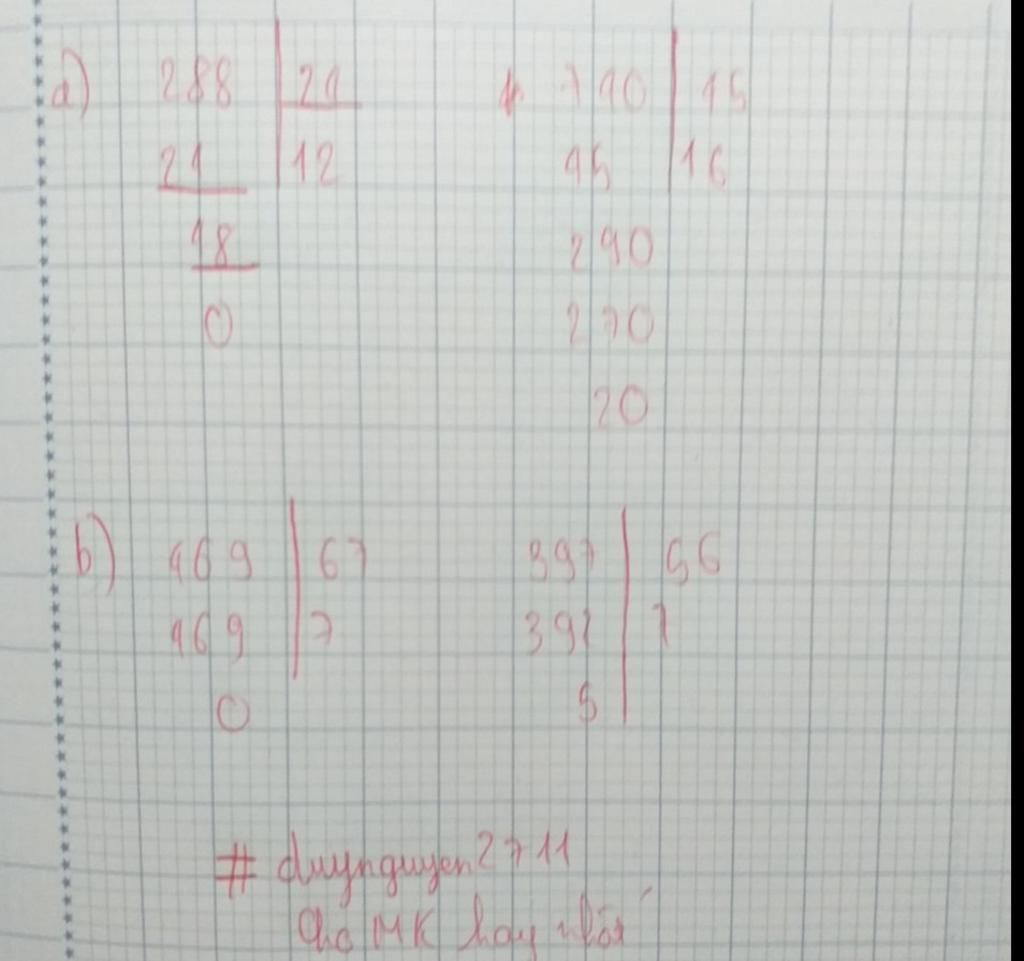 a) 288 21 740 45
21 12 45 16
18 290
0 270
20
b) 469 67 397 56
469 7 392 7
0 5
# duynguyen2711
Cho MK hay nhất